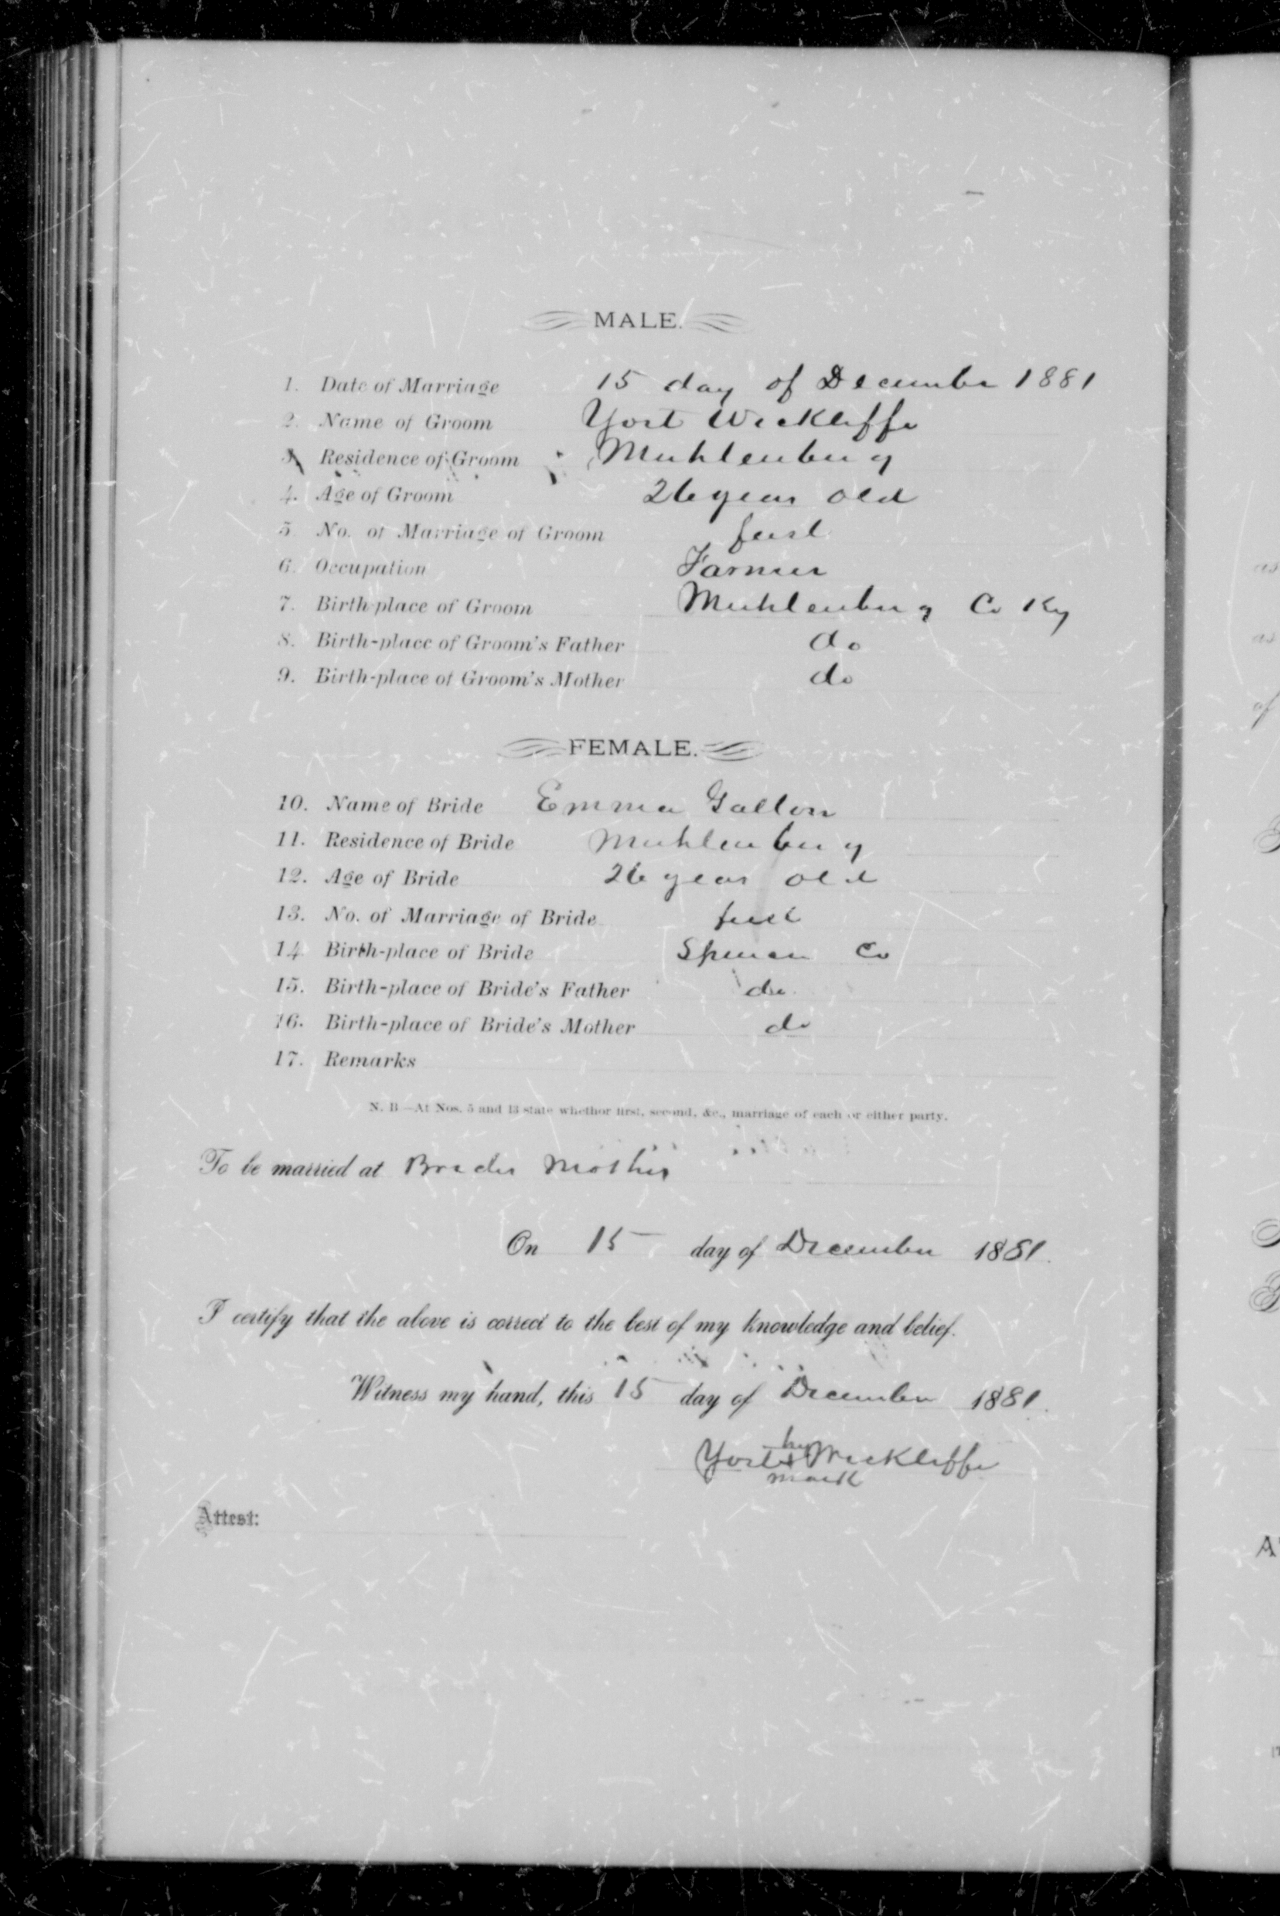 MALE.
1. Date of Marriage 15 day of December 1881
2. Name of Groom Yost Wickliffe
3. Residence of Groom Muhlenburg
4. Age of Groom 26 years old
5 No. of Marriage of Groom first
6. Occupation Farmer
7. Birth-place of Groom Muhlenburg Co Ky
8. Birth-place of Groom's Father do
9. Birth-place of Groom's Mother do
FEMALE.
10. Name of Bride Emma
11. Residence of Bride Muhlenburg
12. Age of Bride 26 years old
13. No. of Marriage of Bride first
14 Birth-place of Bride Co
15. Birth-place of Bride's Father do
16. Birth-place of Bride's Mother do
17. Remarks
N. B.—At Nos. 5 and 13 state whether first, second, &c., marriage of each or either party.
To be married at Brides Mothers
On 15 day of December 1881.
I certify that the above is correct to the best of my knowledge and belief.
Witness my hand, this 15 day of December 1881.
his
Yost x Wickliffe
mark
Attest:
as
as
of